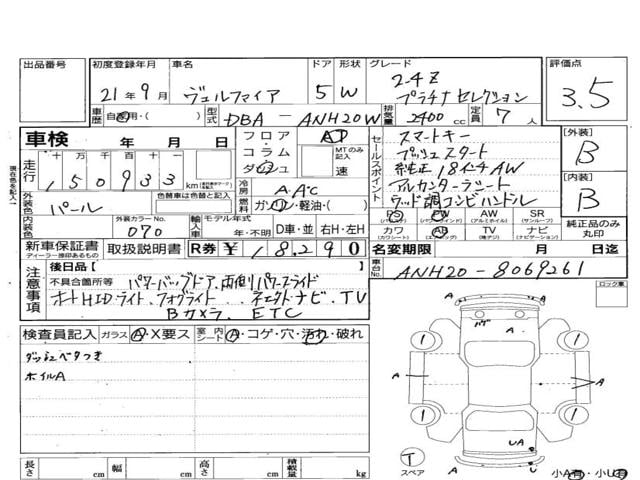 出品番号
初度登録年月 車名 ドア 形状 グレード 評価点
21年9月 ヴェルファイア 5 W 2.4Z プラチナセレクション 3.5
車歴 自家用・( ) 型式 DBA - ANH20W 排気量 2400cc 定員 7人
車検 年 月 日
フロア・コラム・ダッシュ AT MTのみ記入 速
走行 十万 万 千 百 十 一
150933 km
冷房 A・AC
燃料 ガソリン・軽油・( )
セールスポイント スマートキー
プッシュスタート
純正18インチAW
アルカンターラシート
ウッド調コンビハンドル
[外装] B
[内装] B
外装色 パール 色替車は色替と記入
外装カラーNo. 070
輸入車 モデル年式 年・不明 D車・並 右H・左H
PS PW AW SR
(パワーウインドウ) (アルミホイール) (サンルーフ)
カワ AB TV ナビ
(本革シート) (エアバッグ) (地デジ) (ナビゲーション)
純正品のみ丸印
新車保証書 取扱説明書 R券 ¥18290
ディーラー捺印あるもの
名変期限 月 日迄
車台No. ANH20-8069261
現在色を記入
注意事項 後日品[ ]
不具合箇所等 パワーバックドア、両側パワースライド
オートHIDライト、フォグライト、 ナビ、TV
Bカメラ、ETC
ロック車
検査員記入 ガラス A・X要ス 室内シート A・コゲ・穴・汚れ・破れ
ダッシュベタつき
ホイルA
バゲ
A
A
A
1
1
1
1
UA
U
T
スペア
小A有・小U有
長さ cm 幅 cm 高さ cm 積載量 kg